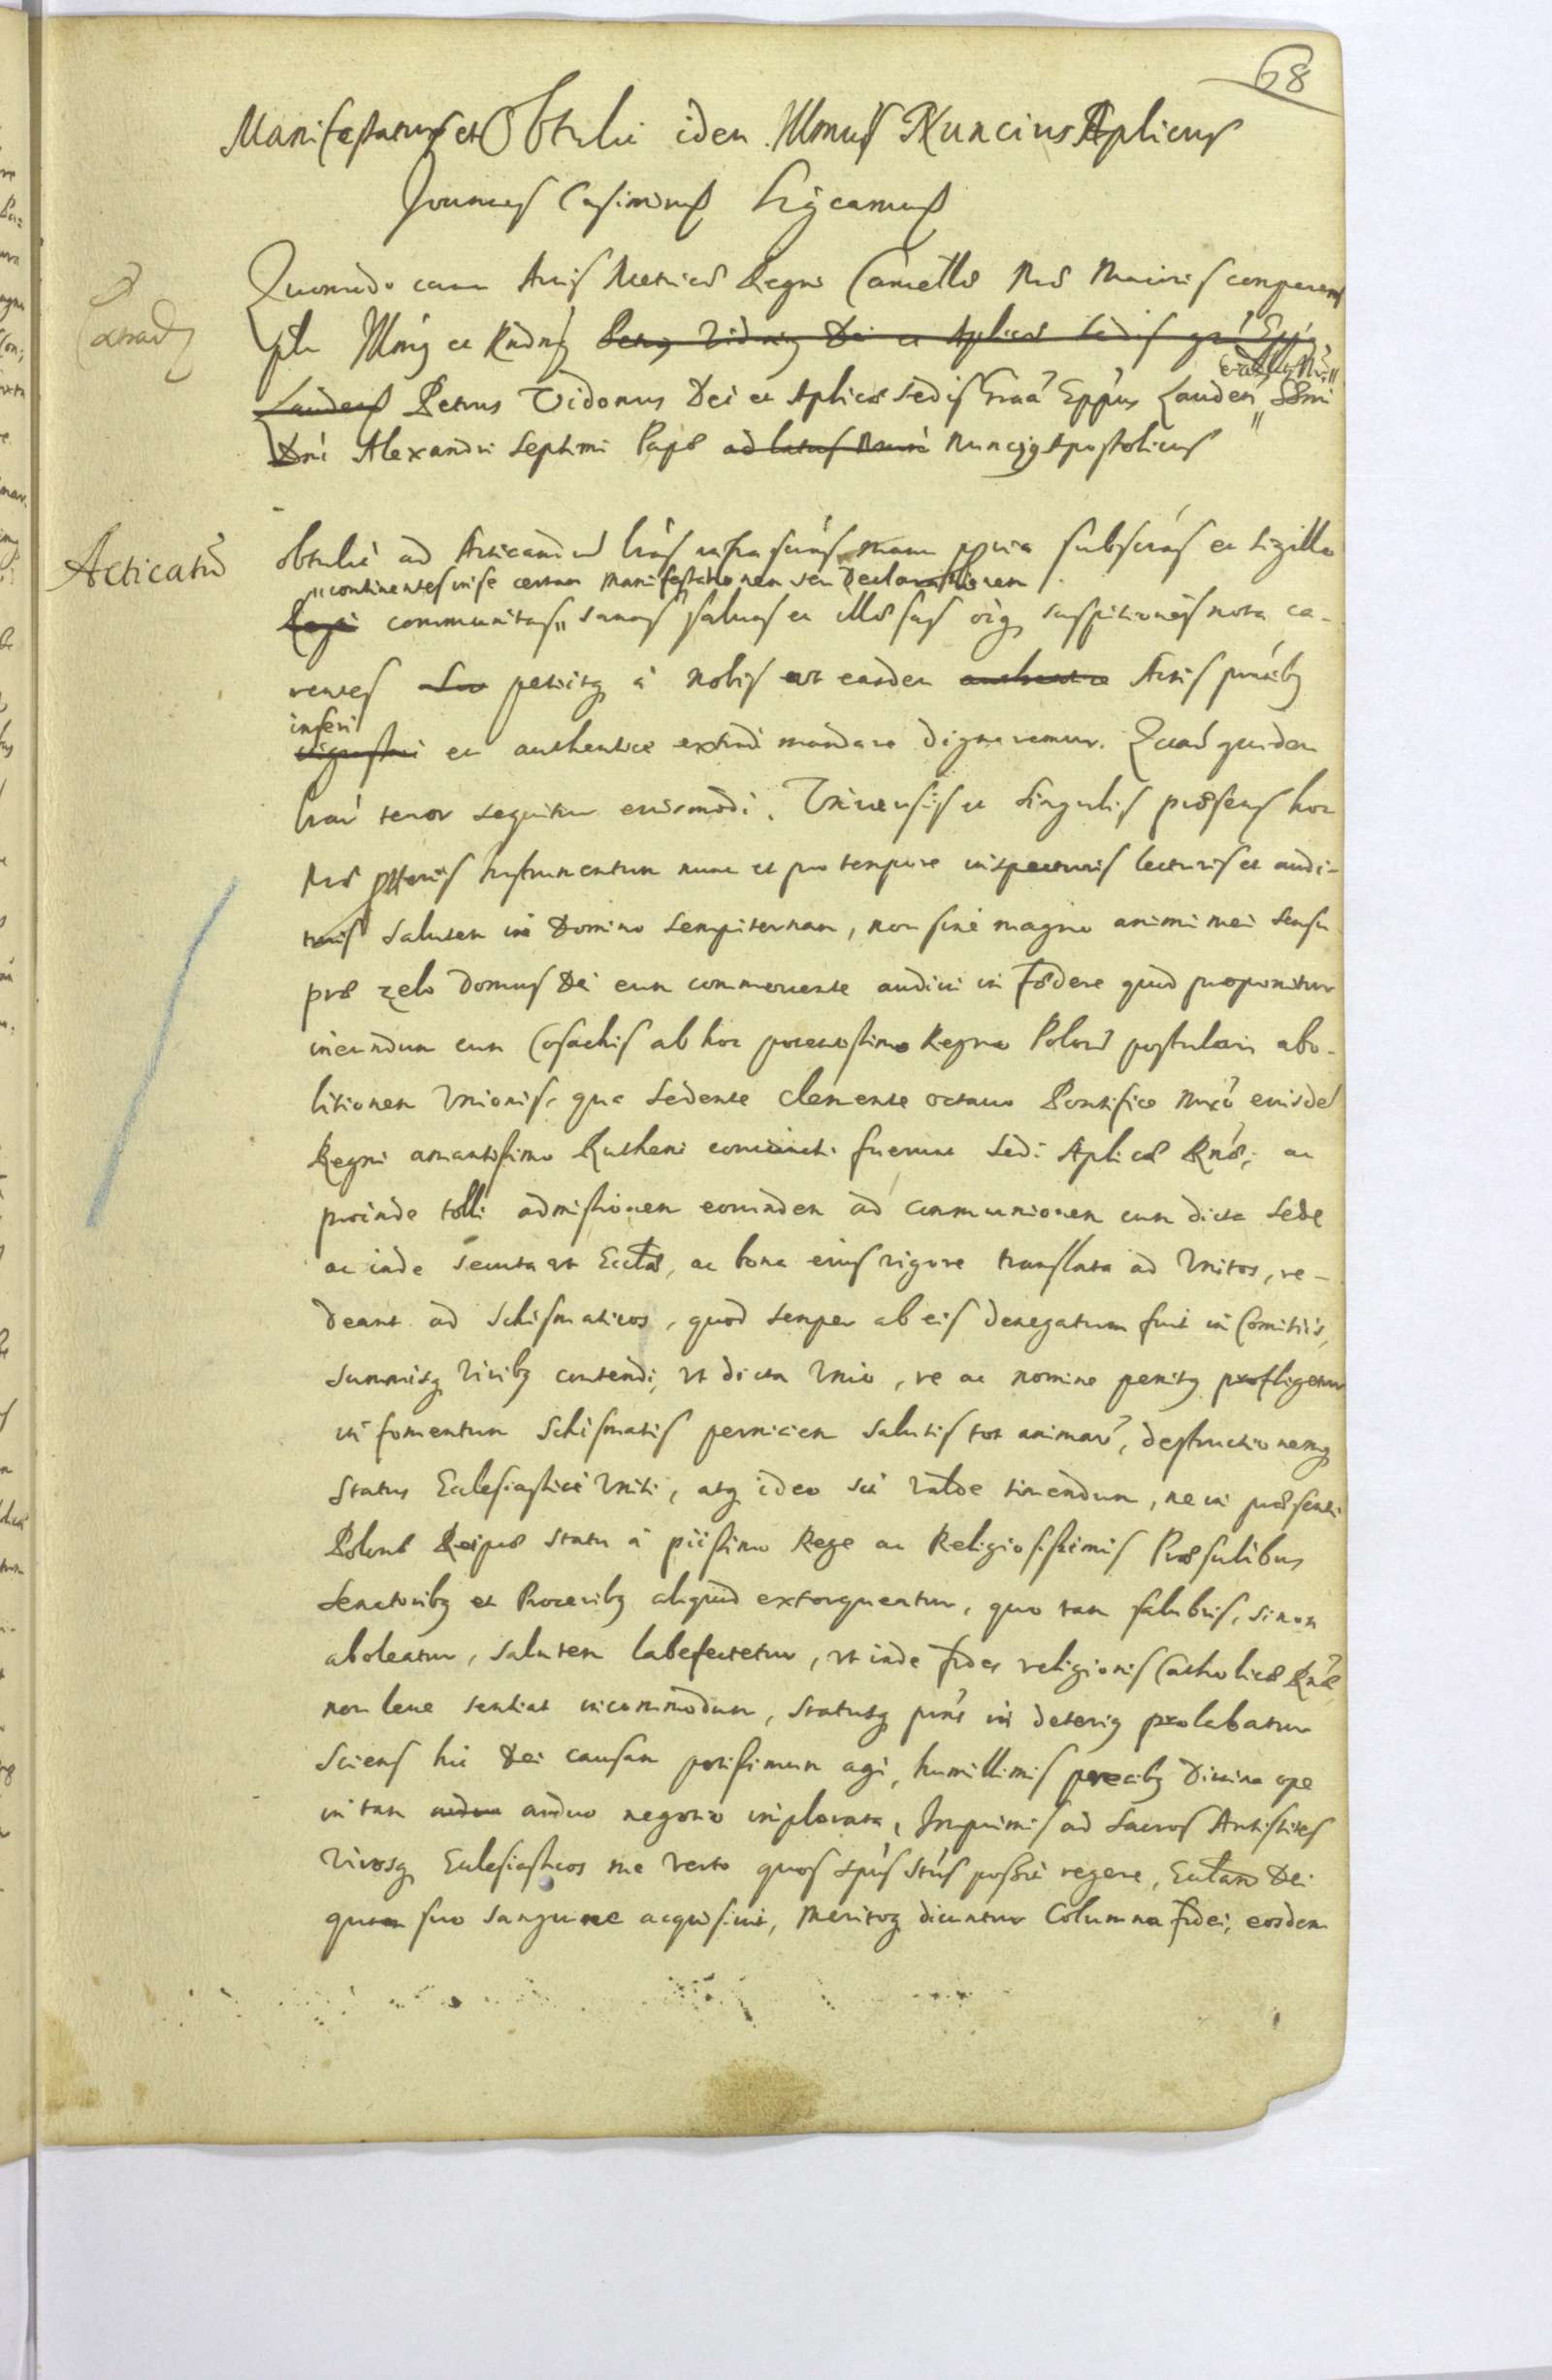 68
Manifestatur et Obtulit idem Illmus Nuncius Aplicus
Joannes Casimirus
Quomodo cum Actis Metrices Regni Cancellæ Mrs Maioris comparens
Extrad
psr Illmus et Rndus Petrus Vidonus Dei et Aplicæ Sedis gra Eppus
Lauden Petrus Vidonus Dei et Aplicæ Sedis Graa Eppus Lauden Ssmi
Dni Alexandri Septimi Papæ ad latus Nuncijq Apostolicus
Acticatu
obtulit ad Acticand lras infra scras manu ppria subscras et Sigillo
continentes in se certam Manifestationem seu Declarationem
communitas sanas saluas et illæsas oiq suspitionis nota ca-
rentes petiitq à Nobis ut easdem authentice Actis pntibq
inseri
et authentice extradi mandare dignaremur. Quarũ quidem
lrarũ tenor sequitur eiusmodi. Vniuersis et Singulis præsens hoc
Mrs Instrumentum nunc et pro tempore inspecturis lecturis et audi-
turis Salutem in Domino Sempiternam, non sine magno animi mei Sensu
præ zelo Domus Dei eum commouente audiui in Fœdere quod proponitur
ineundum cum Cosachis ab hoc potentissimo Regno Poloñ postulari abo-
litionem Vnionis, qua Sedente Clemente octauo Pontifice Mxõ eiusdẽ
Regni amantissimo Rutheni coniuncti fuerunt Sedi Aplicæ Rnæ, ac
proinde tolli admissionem eorundem ad communionem cum dicta Sede
ac inde Secuta ut Ecclæ, ac bona eius vigore translata ad Vnitos, re-
deant ad Schismaticos, quod semper ab eis denegatum fuit in Comitijs,
Summisq Viribq contendi, ut dicta Vnio, re ac nomine penitq profligetur
in fomentum Schismatis perniciem Salutis tot animarũ, destructionemq
Status Ecclesiastici Vniti, atq ideo sit valde timendum, ne in præsenti
Polonæ Reipcæ Statu à piissimo Rege ac Religiosissimis Præsulibus
Senatoribq et Proceribq aliquid extorqueatur, quo tam salubris, si non
aboleatur, Salutem labefectetur, ut inde fides religionis Catholicæ Rnæ
non leue sentiat incommodum, Statusq pns in deteriq prolabatur
Sciens hic Dei causam potissimum agi, humillimis precibq Diuina ope
in tam ardua arduo negotio implorata, Inprimis ad Sacros Antistites
Virosq Ecclesiasticos me verto quos Spus Stus posuit regere, Ecclam Dei
quam suo sanguine acquisiuit, Meritoq dicuntur Columna fidei, eosdem